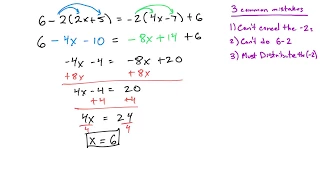 6-2(2x+5) = -2(4x-7)+6
6 -4x-10 = -8x+14 +6
-4x -4 = -8x+20
+8x +8x
4x-4 = 20
+4 +4
4x = 24
4 4
x = 6
3 common mistakes
1) Can't cancel the -2s
2) Can't do 6-2
3) Must Distribute the (-2)